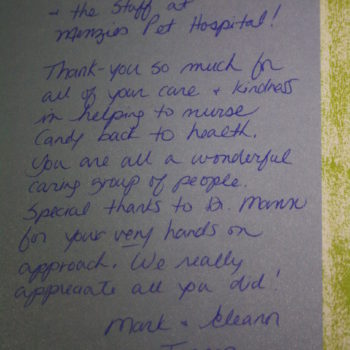 + the Staff at
Menzies Pet Hospital!
Thank-you so much for
all of your care + kindness
in helping to nurse
Candy back to health.
You are all a wonderful
caring group of people.
Special thanks to Dr. Mann
for your very hands on
approach. We really
appreciate all you did!
Mark + Eleanor